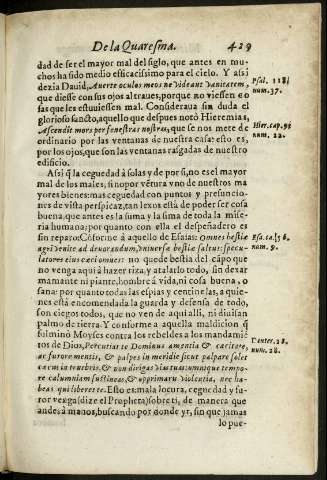 De la Quaresma. 429
dad de ser el mayor mal del siglo, que antes en mu-
chos ha sido medio efficacissimo para el cielo. Y assi
dezia Dauid, Auerte oculos meos ne videant vanitatem,
que diesse con sus ojos al traues, porque no viessen co
sas que les estuuiessen mal. Consideraua sin duda el
glorioso sancto, aquello que despues notò Hieremias,
Ascendit mors per fenestras nostras, que se nos mete de
ordinario por las ventanas de nuestra casa: esto es,
por los ojos, que son las ventanas rasgadas de nuestro
edificio.
Assi q̃ la ceguedad à solas y de por si, no es el mayor
mal de los males, si no por vẽtura vno de nuestros ma
yores bienes: mas ceguedad con puntos y presuncio-
nes de vista perspicaz, tan lexos està de poder ser cosa
buena, que antes es la suma y la sima de toda la mise-
ria humana; por quanto con ella el despeñadero es
sin reparo: Cõforme à aquello de Esaias: Omnes bestiæ
agri venite ad deuorandum, vniuersæ bestiæ saltus: specu-
latores eius cæci omnes: no quede bestia del cãpo que
no venga aqui à hazer riza, y atalarlo todo, sin dexar
mamante ni piante, hombre à vida, ni cosa buena, o
sana: por quanto todas las espias y centinelas, à quie-
nes està encomendada la guarda y defensa de todo,
son ciegos todos, que no ven de aqui alli, ni diuisan
palmo de tierra. Y conforme a aquella maldicion q̃
fulminò Moyses contra los rebeldes a los mandamiẽ
tos de Dios, Percutiat te Dominus amentia & cæcitate,
ac furore mentis, & palpes in meridie sicut palpare solet
cæcus in tenebris, & non dirigas vias tuas: omnique tempo-
re calumniam sustineas, & opprimaris violentia, nec ha-
beas qui liberet te. Esto es: mala locura, ceguedad y fu-
ror venga (dize el Propheta) sobre ti, de manera que
andes à manos, buscando por donde yr, sin que jamas
lo pue-
Psal. 118.
num. 37.
Hier. cap. 9.
num. 21.
Esa. ca. 56.
num. 9.
Deuter. 28.
num. 28.